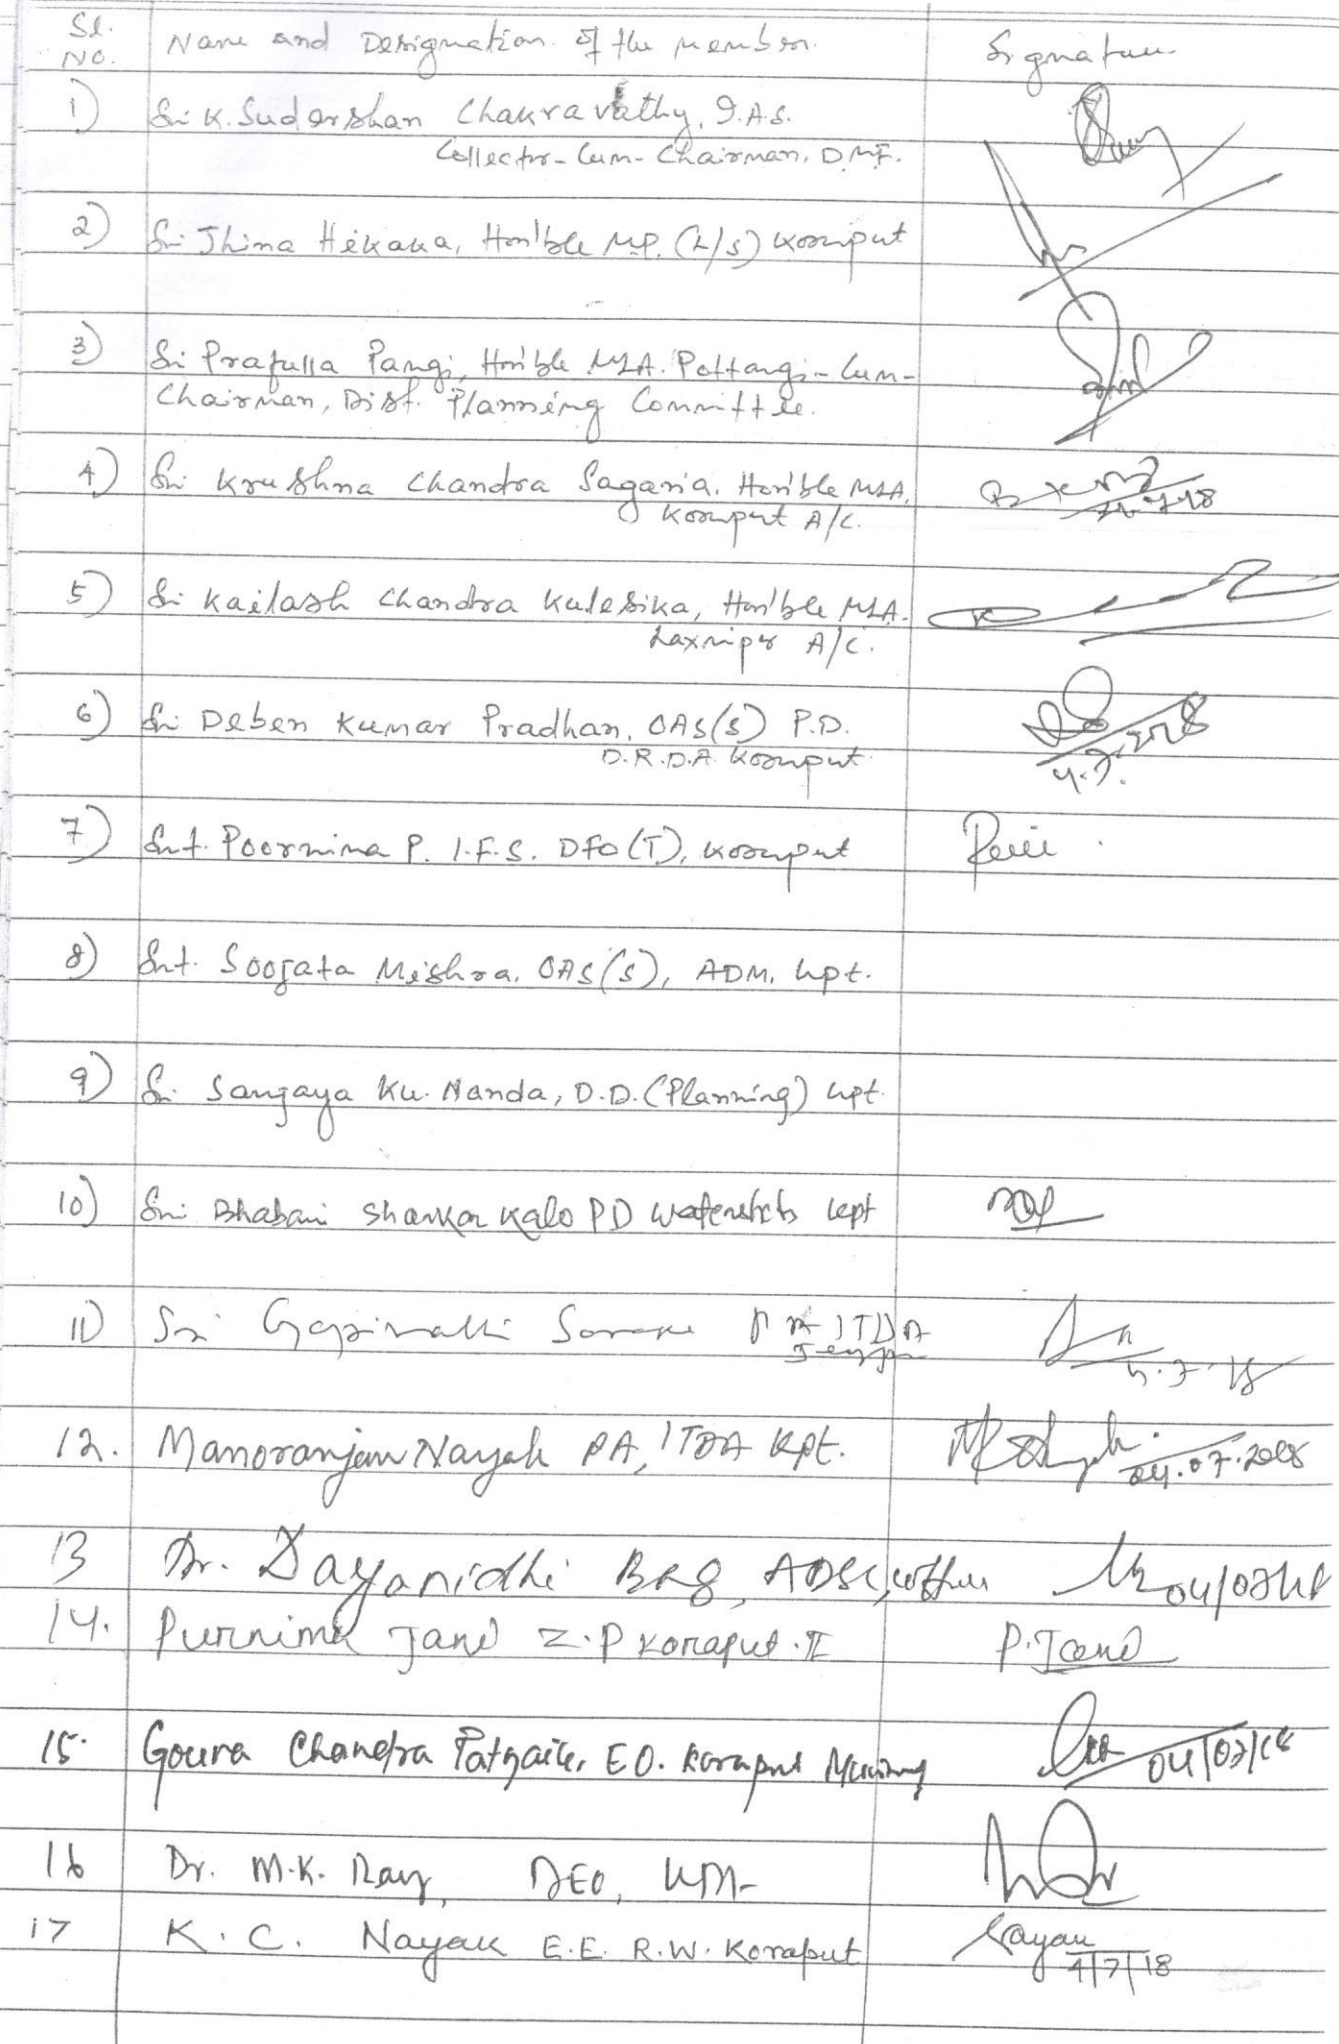 Sl. No. Name and Designation of the member. Signature
1) Sri K. Sudarshan Chakravathy, I.A.S.
Collector-Cum-Chairman, DMF.
2) Sri Jhina Hikaka, Hon'ble MP. (L/S) Koraput
3) Sri Prafulla Pangi, Hon'ble MLA. Pottangi-Cum-
Chairman, Dist. Planning Committee.
4) Sri Krushna Chandra Sagaria, Hon'ble MLA,
Koraput A/C.
5) Sri Kailash Chandra Kulesika, Hon'ble MLA.
Laxmipr A/C.
6) Sri Deben Kumar Pradhan, OAS(S) P.D.
D.R.D.A. Koraput
4.7.2018
7) Smt. Poornima P. I.F.S. DFO(T), Koraput
8) Smt. Soojata Mishra, OAS(S), ADM, kpt.
9) Sri Sanjaya Ku. Nanda, D.D. (Planning) kpt.
10) Sri Bhabani Shankar Kalo PD Watersheds kpt
11) Sri Gopinath PA ITDA
4.7.18
12. Manoranjan Nayak PA, ITDA Kpt. 04.07.2018
13 Dr. Dayanidhi Bag, ADSC, 04/07/18
14. Purnima Jani Z.P Koraput-II P. Jani
15. Goura Chandra Patnaik, E.O. Koraput 04/07/18
16 Dr. M.K. Ray, DEO,
17 K.C. Nayak E.E. R.W. Koraput Nayak
4/7/18